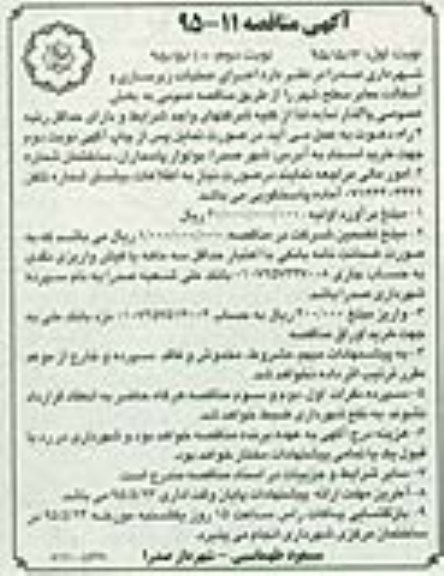 آگهی مناقصه ۱۱-۹۵
نوبت اول: ۹۵/۵/۳ نوبت دوم: ۹۵/۵/۱۰
شهرداری صدرا در نظر دارد اجرای عملیات زیرسازی و
آسفالت معابر سطح شهر را از طریق مناقصه عمومی به بخش
خصوصی واگذار نماید لذا از کلیه شرکتهای واجد شرایط و دارای حداقل رتبه
راه دعوت به عمل می آید در صورت تمایل پس از چاپ آگهی نوبت دوم
جهت خرید اسناد به آدرس: شهر صدرا، بولوار پاسداران، ساختمان شماره
۲ امور مالی مراجعه نمایند درصورت نیاز به اطلاعات بیشتر شماره تلفن
آماده پاسخگویی می باشد.
۱- مبلغ برآورد اولیه ریال
۲- مبلغ تضمین شرکت در مناقصه ریال می باشد که به
صورت ضمانت نامه بانکی با اعتبار حداقل سه ماهه یا فیش واریزی نقدی
به حساب جاری بانک ملی شعبه صدرا به نام سپرده
شهرداری صدرا باشد.
۳- واریز مبلغ ریال به حساب نزد بانک ملی به
جهت خرید اوراق مناقصه
۴- به پیشنهادات مبهم، مشروط، مخدوش و فاقد سپرده و خارج از موعد
مقرر ترتیب اثر داده نخواهد شد.
۵- سپرده نفرات اول، دوم و سوم مناقصه هرگاه حاضر به انعقاد قرارداد
نشوند به نفع شهرداری ضبط خواهد شد.
۶- هزینه درج آگهی به عهده برنده مناقصه خواهد بود و شهرداری در رد یا
قبول یک یا تمامی پیشنهادات مختار خواهد بود.
۷- سایر شرایط و جزییات در اسناد مناقصه مندرج است.
۸- آخرین مهلت ارائه پیشنهادات پایان وقت اداری ۹۵/۵/۲۳ می باشد.
۹- بازگشایی پاکات راس ساعت ۱۵ روز یکشنبه مورخه ۹۵/۵/۲۴ در
ساختمان مرکزی شهرداری انجام می پذیرد.
مسعود طهماسبی - شهردار صدرا